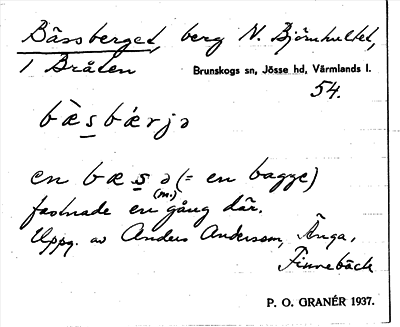 Bässberget, berg N. Björnhultet,
1 Bråten Brunskogs sn, Jösse hd, Värmlands l.
54.
bæ̀sbǽrjə
en bæsə (= en bagge)
(m.)
fastnade en gång där.
Uppg. av Anders Andersson, Änga,
Finnebäck
P. O. GRANÉR 1937.